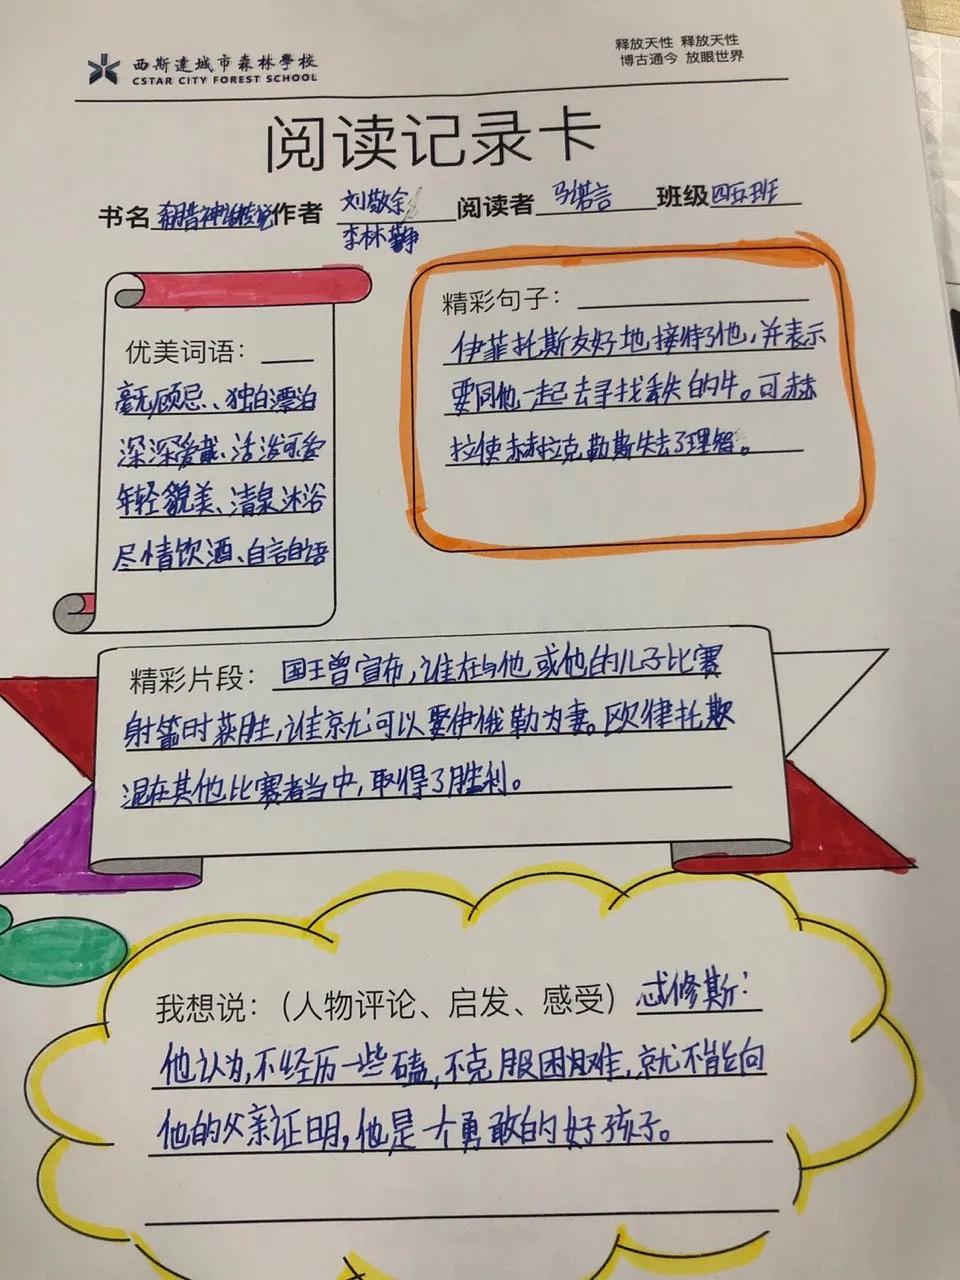 西斯達城市森林學校
CSTAR CITY FOREST SCHOOL
释放天性 释放天性
博古通今 放眼世界
阅读记录卡
书名 希腊神话传说 作者 刘敬余 阅读者 马诺言 班级 四五班
李林
优美词语：
毫无顾忌、独自漂泊
深深爱戴、活泼可爱
年轻貌美、清泉沐浴
尽情饮酒、自言自语
精彩句子：
伊菲托斯友好地接待了他，并表示
要同他一起去寻找丢失的牛。可赫
拉使赫拉克勒斯失去了理智。
精彩片段： 国王曾宣布，谁在与他或他的儿子比赛
射箭时获胜，谁就可以娶伊俄勒为妻。欧律托斯
混在其他比赛者当中，取得了胜利。
我想说：（人物评论、启发、感受） 忒修斯：
他认为，不经历一些磕，不克服困难，就不能向
他的父亲证明，他是一个勇敢的好孩子。